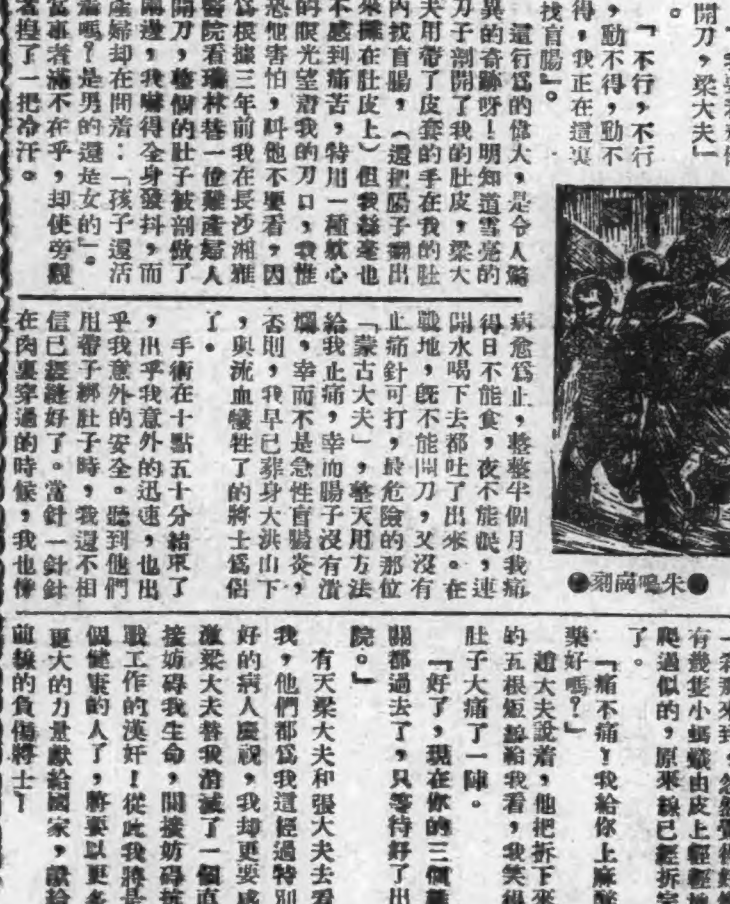 開刀，梁大夫」
。
「不行，不行
，動不得，動不
得，我正在這裏
找盲腸」。
這行爲的偉大，是令人驚
異的奇跡呀！明知道雪亮的
刀子剖開了我的肚皮，梁大
夫用帶了皮套的手在我的肚
內找盲腸，（還把腸子翻出
來攤在肚皮上）但我絲毫也
不感到痛苦，特用一種 心
的眼光望着我的刀口，我惟
恐他害怕，叫他不要看，因
爲根據三年前我在長沙湘雅
醫院看 林替一位難產婦人
開刀，整個的肚子被剖做了
兩邊，我嚇得全身發抖，而
產婦却在問着：「孩子還活
着嗎？是男的還是女的」。
當事者滿不在乎，却使旁觀
者揑了一把冷汗。
●朱鳴岡刻●
病愈爲止，整整半個月我痛
得日不能食，夜不能眠，連
開水喝下去都吐了出來。在
戰地，旣不能開刀，又沒有
止痛針可打，最危險的那位
「蒙古大夫」，整天用方法
給我止痛，幸而腸子沒有潰
爛，幸而不是急性盲腸炎，
否則，我早已葬身大洪山下
，與流血犧牲了的將士爲侶
了。
手術在十點五十分結束了
，出乎我意外的迅速，也出
乎我意外的安全。聽到他們
用帶子綁肚子時，我還不相
信已經縫好了。當針一針針
在肉裏穿過的時候，我也像
有幾隻小螞蟻由皮上輕輕地
爬過似的，原來線已經拆完
了。
「痛不痛？我給你上麻醉
藥好嗎？」
趙大夫說着，他把拆下來
的五根短線給我看，我笑得
肚子大痛了一陣。
「好了，現在你的三個難
關都過去了，只等待好了出
院。」
有天梁大夫和張大夫去看
我，他們都爲我這經過特別
好的病人慶祝，我却更要感
激梁大夫替我消滅了一個直
接妨碍我生命，間接妨碍抗
戰工作的漢奸！從此我將是
個健康的人了，將要以更多
更大的力量獻給國家，獻給
前線的負傷將士！